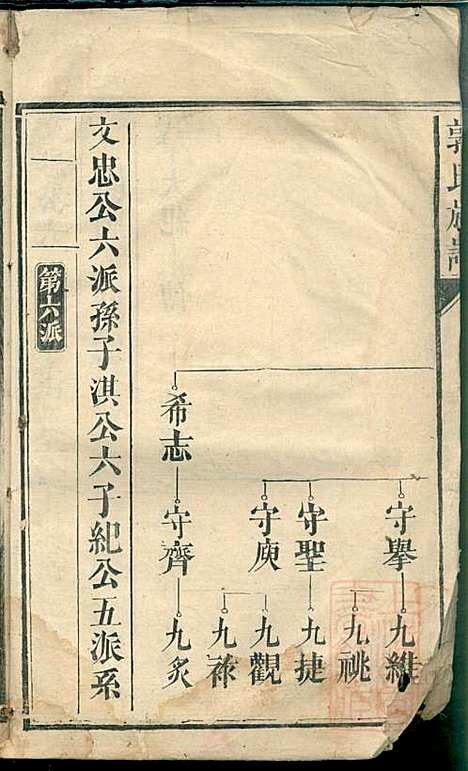 郭氏族譜
守舉 九維
九祧
守聖 九捷
守庚 九觀
九祿
希志 守齊 九炙
文忠公六派孫子淇公六子紀公五派系
第六派